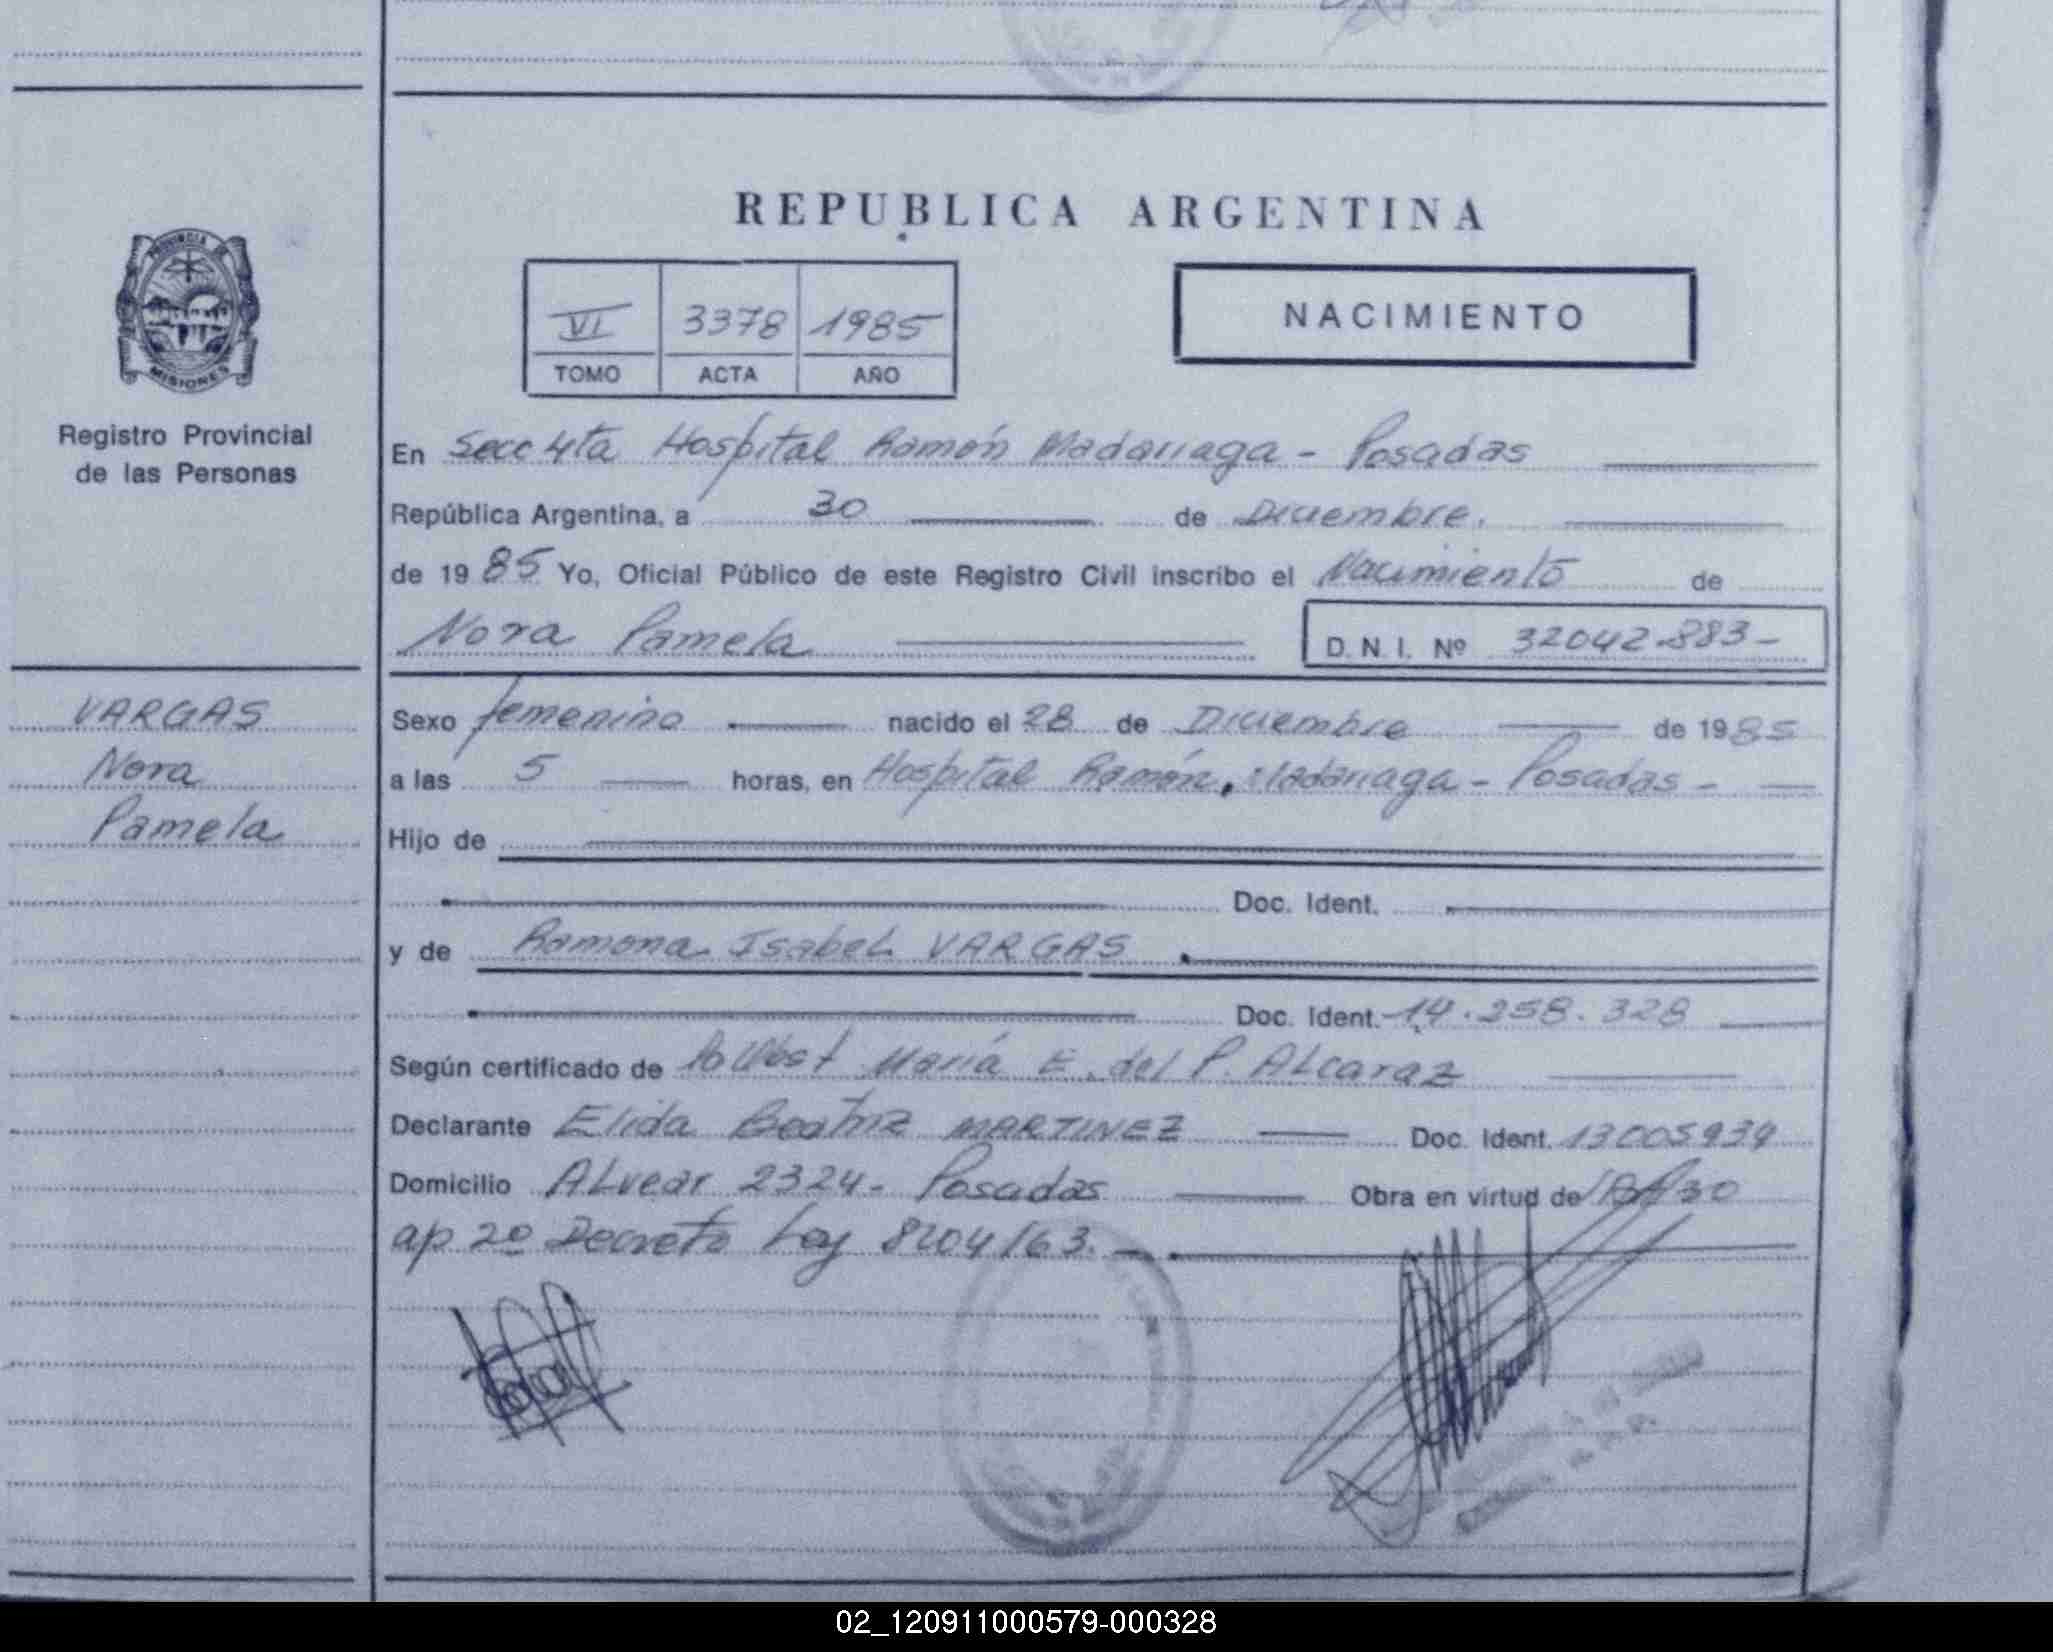 REPUBLICA ARGENTINA
VI 3378 1985
TOMO ACTA AÑO
NACIMIENTO
PROVINCIA DE
MISIONES
Registro Provincial
de las Personas
En Secc 4ta Hospital Ramón Madariaga - Posadas
República Argentina, a 30 de Diciembre.
de 1985 Yo, Oficial Público de este Registro Civil inscribo el Nacimiento de
Nora Pamela D. N. I. Nº 32042.883-
VARGAS
Nora
Pamela
Sexo femenino nacido el 28 de Diciembre de 1985
a las 5 horas, en Hospital Ramón Madariaga - Posadas -
Hijo de
Doc. Ident.
y de Ramona Isabel VARGAS
Doc. Ident. 14.258.328
Según certificado de María E. del P. ALcaraz
Declarante Elida Beatriz MARTINEZ Doc. Ident. 13005939
Domicilio ALvear 2324- Posadas Obra en virtud de 30
ap 2º Decreto Ley 8204/63.
02_120911000579-000328